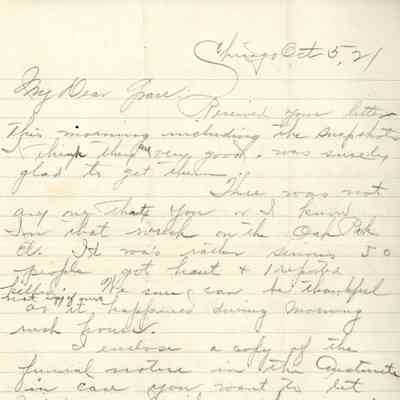 Chicago Oct 5, 21
My Dear Grace:
Received your letter
this morning including the snapshots
I think they are very good, was surely
glad to get them.
There was not
any one that you or I knew
in that wreck on the Oak Park
El. It was rather serious 50
people got hurt & 1 reported
killed. We sure can be thankful
as it happened during morning
rush hours.
I enclose a copy of the
funeral notice in the
in case you want to let